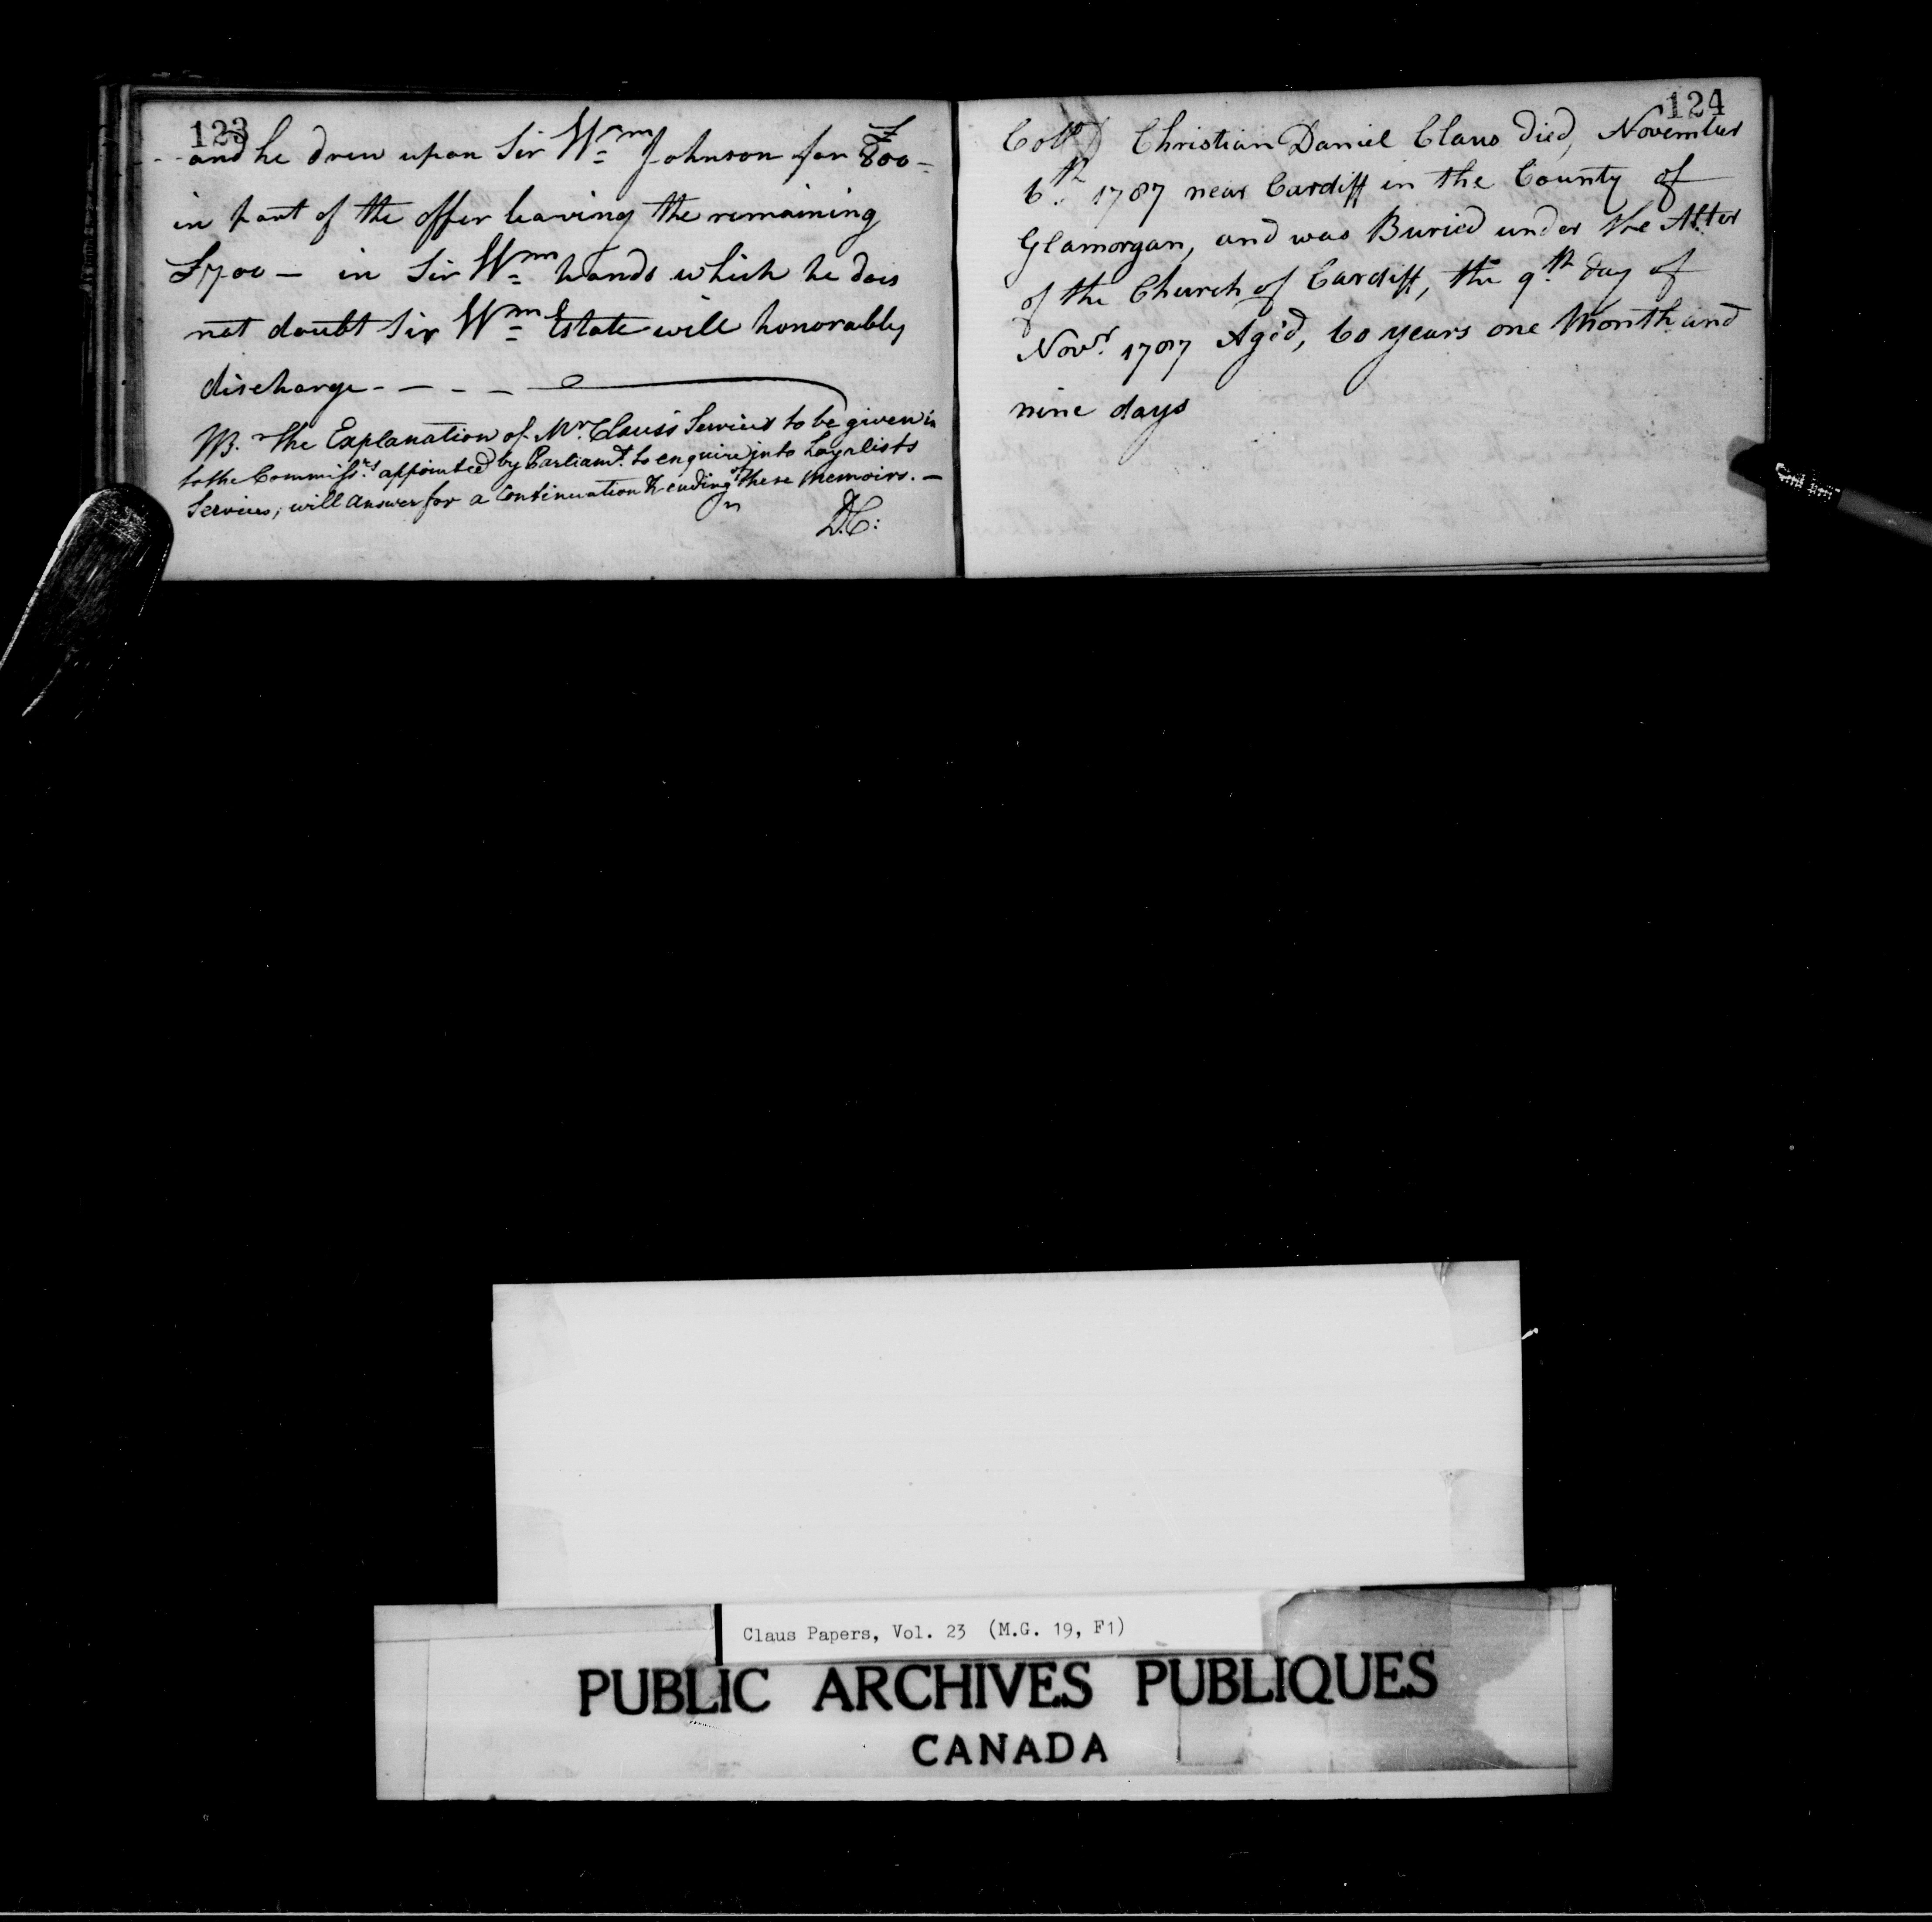 123
and he drew upon Sir Wm Johnson for £800 -
in part of the offer leaving the remaining
£700 - in Sir Wm hands which he does
not doubt Sir Wm Estate will honorably
discharge - - - -
NB. The Explanation of Mr. Claus's Services to be given in
to the Commissrs. appointed by Parliamt. to enquire into Loyalists
Services, will answer for a Continuation & ending of these Memoirs. -
D.C:
124
Coll Christian Daniel Claus died, November
6th. 1787 near Cardiff in the County of
Glamorgan, and was Buried under the Alter
of the Church of Cardiff, the 9th day of
Novr. 1787 Aged, 60 years one Month and
nine days
Claus Papers, Vol. 23 (M.G. 19, F1)
PUBLIC ARCHIVES PUBLIQUES
CANADA